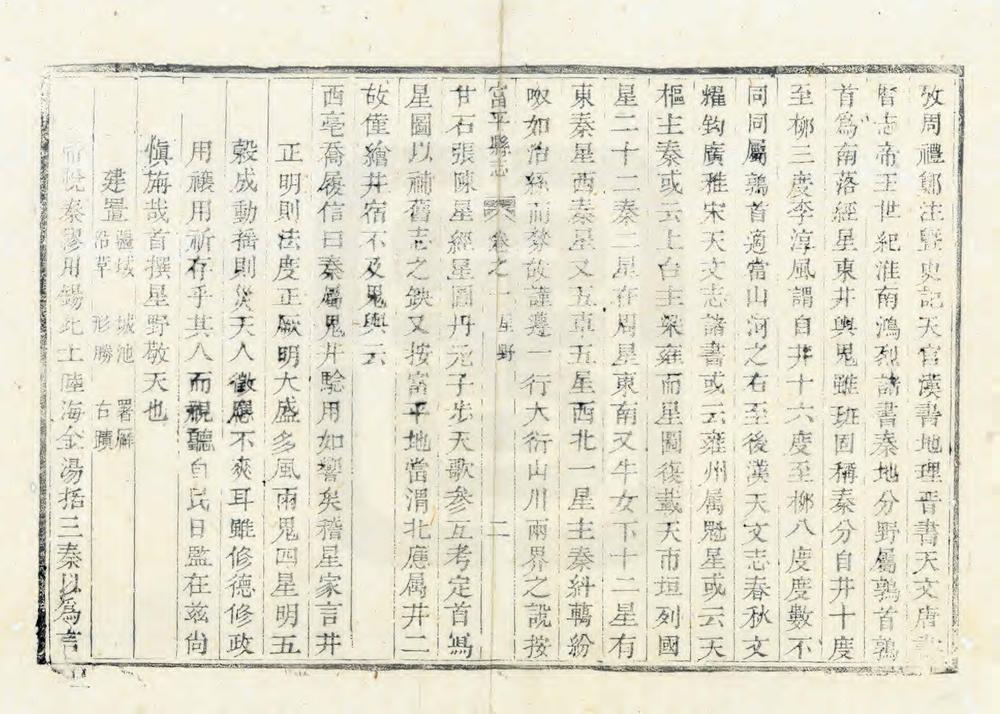 攷周禮鄭注曁史記天官漢書地理晋書天文唐書
曆志帝王世紀淮南鴻烈諸書秦地分野屬鶉首鶉
首爲南落經星東井輿鬼雖班固稱秦分自井十度
至柳三度李淳風謂自井十六度至柳八度度數不
同同屬鶉首適當山河之右至後漢天文志春秋文
耀鉤廣雅宋天文志諸書或云雍州属魁星或云天
樞主秦或云上台主梁雍而星圖復載天市垣列國
星二十二秦二星在周星東南又牛女下十二星有
東秦星西秦星又五車五星西北一星主秦糾轕紛
呶如治絲而棼故謹遵一行大衍山川兩界之說按
富平縣志 卷之一 星野 二
甘石張陳星經星圖丹元子步天歌參互考定首爲
星圖以補舊志之鈌又按富平地當渭北應属井二
故僅繪井宿不及鬼與云
西亳喬履信曰秦屬鬼井騐用如響矣稽星家言井
正明則法度正厥明大盛多風雨鬼四星明五
榖成動揺則災天人徵應不爽耳雖修德修政
用禳用祈存乎其人而視聽自民日監在兹尙
愼旃哉首撰星野敬天也
建置 疆域 城池 署廨
沿革 形勝 古蹟
帝悅秦繆用錫此土陸海金湯括三秦以爲言